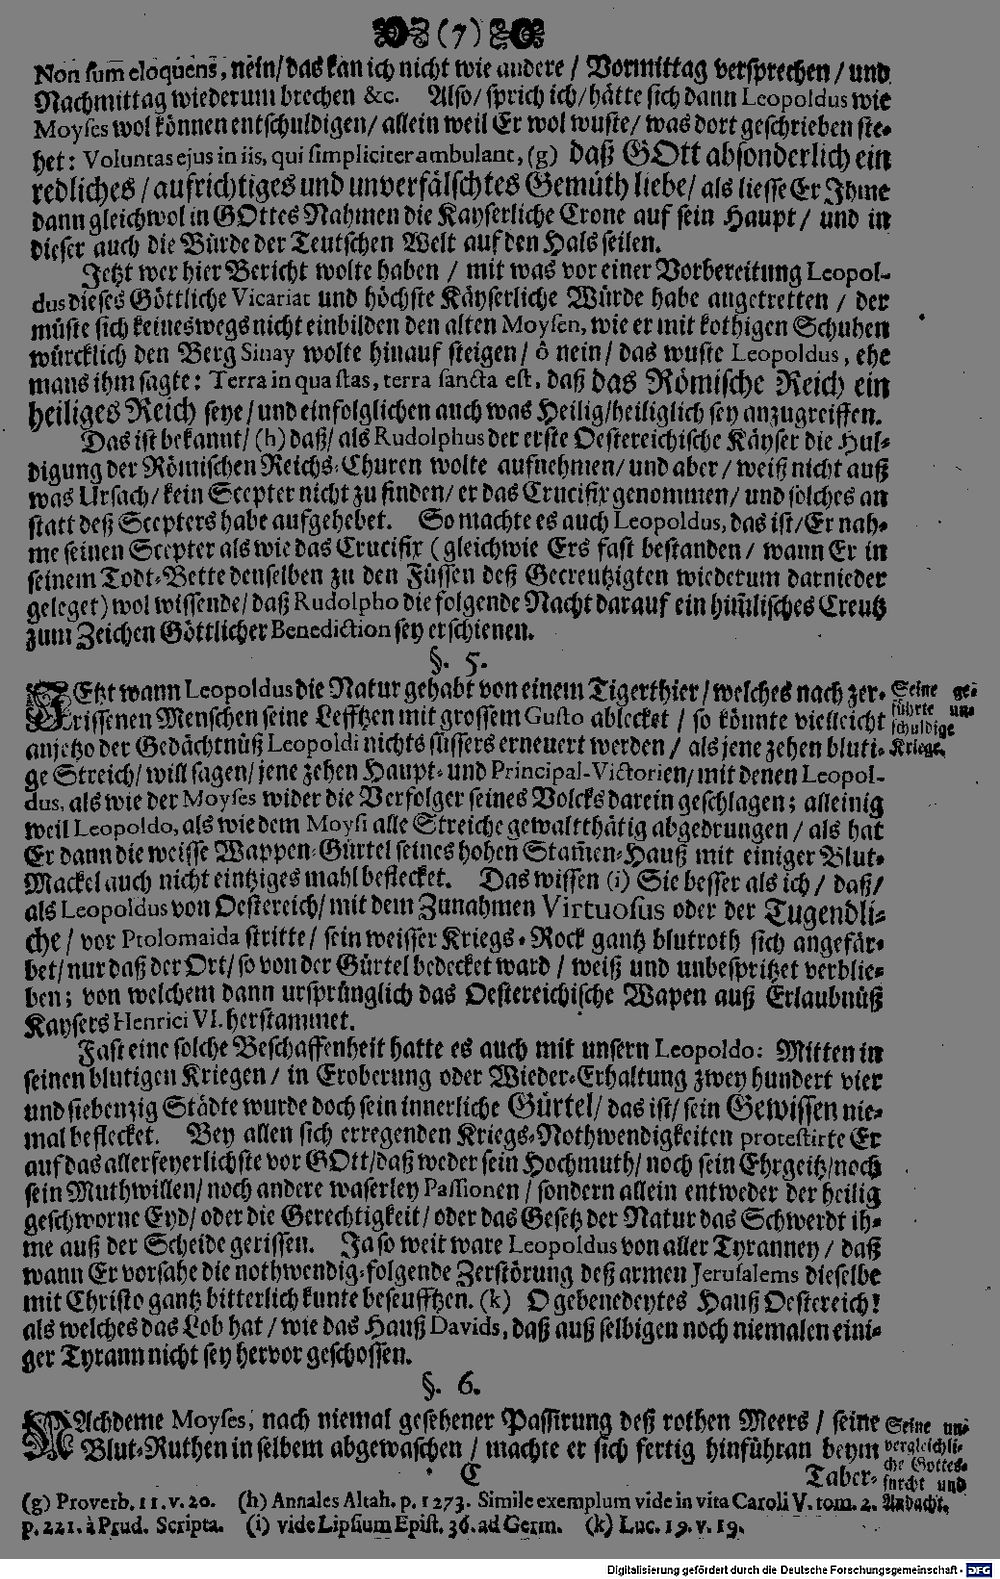 (7)
Non sum̃ eloquens, nein/ das kan ich nicht wie andere / Vormittag versprechen / und
Nachmittag wiederum brechen &c. Also/ sprich ich/ hätte sich dann Leopoldus wie
Moyses wol können entschuldigen/ allein weil Er wol wuste/ was dort geschrieben ste-
het: Voluntas ejus in iis, qui simpliciter ambulant, (g) daß GOtt absonderlich ein
redliches / aufrichtiges und unverfälschtes Gemüth liebe/ als liesse Er Ihme
dann gleichwol in GOttes Nahmen die Kayserliche Crone auf sein Haupt / und in
dieser auch die Bürde der Teutschen Welt auf den Hals seilen.
Jetzt wer hier Bericht wolte haben / mit was vor einer Vorbereitung Leopol-
dus dieses Göttliche Vicariat und höchste Käyserliche Würde habe angetretten / der
müste sich keineswegs nicht einbilden den alten Moysen, wie er mit kothigen Schuhen
würcklich den Berg Sinay wolte hinauf steigen / ô nein / das wuste Leopoldus, ehe
mans ihm sagte: Terra in qua stas, terra sancta est, daß das Römische Reich ein
heiliges Reich seye / und einfolglichen auch was Heilig/ heiliglich sey anzugreiffen.
Das ist bekannt/ (h) daß/ als Rudolphus der erste Oestereichische Käyser die Hul-
digung der Römischen Reichs-Churen wolte aufnehmen/ und aber / weiß nicht auß
was Ursach/ kein Scepter nicht zu finden/ er das Crucifix genommen/ und solches an
statt deß Scepters habe aufgehebet. So machte es auch Leopoldus, das ist/ Er nah-
me seinen Scepter als wie das Crucifix (gleichwie Ers fast bestanden / wann Er in
seinem Todt-Bette denselben zu den Füssen deß Gecreutzigten wiederum darnieder
geleget) wol wissende/ daß Rudolpho die folgende Nacht darauf ein him̃lisches Creutz
zum Zeichen Göttlicher Benediction sey erschienen.
§. 5.
JEtzt wann Leopoldus die Natur gehabt von einem Tigerthier / welches nach zer-
rissenen Menschen seine Lefftzen mit grossem Gusto ablecket / so könnte vielleicht
anjetzo der Gedächtnüß Leopoldi nichts süssers erneuert werden / als jene zehen bluti-
ge Streich/ will sagen/ jene zehen Haupt- und Principal-Victorien/ mit denen Leopol-
dus, als wie der Moyses wider die Verfolger seines Volcks darein geschlagen; alleinig
weil Leopoldo, als wie dem Moysi alle Streiche gewaltthätig abgedrungen / als hat
Er dann die weisse Wappen-Gürtel seines hohen Stam̃en-Hauß mit einiger Blut-
Mackel auch nicht eintziges mahl beflecket. Das wissen (i) Sie besser als ich / daß/
als Leopoldus von Oestereich/ mit dem Zunahmen Virtuosus oder der Tugendli-
che / vor Ptolomaida stritte / sein weisser Kriegs-Rock gantz blutroth sich angefär-
bet/ nur daß der Ort/ so von der Gürtel bedecket ward / weiß und unbespritzet verblie-
ben; von welchem dann ursprünglich das Oestereichische Wapen auß Erlaubnüß
Kaysers Henrici VI. herstammet.
Seine ge-
führte un-
schuldige
Kriege.
Fast eine solche Beschaffenheit hatte es auch mit unsern Leopoldo: Mitten in
seinen blutigen Kriegen / in Eroberung oder Wieder-Erhaltung zwey hundert vier
und siebenzig Städte wurde doch sein innerliche Gürtel / das ist/ sein Gewissen nie-
mal beflecket. Bey allen sich erregenden Kriegs-Nothwendigkeiten protestirte Er
auf das allerfeyerlichste vor GOtt/ daß weder sein Hochmuth/ noch sein Ehrgeitz/ noch
sein Muthwillen/ noch andere waserley Passionen / sondern allein entweder der heilig
geschworne Eyd/ oder die Gerechtigkeit / oder das Gesetz der Natur das Schwerdt ih-
me auß der Scheide gerissen. Ja so weit ware Leopoldus von aller Tyranney / daß
wann Er vorsahe die nothwendig-folgende Zerstörung deß armen Jerusalems dieselbe
mit Christo gantz bitterlich kunte beseufftzen. (k) O gebenedeytes Hauß Oestereich!
als welches das Lob hat / wie das Hauß Davids, daß auß selbigen noch niemalen eini-
ger Tyrann nicht sey hervor geschossen.
§. 6.
NAchdeme Moyses, nach niemal gesehener Passirung deß rothen Meers / seine
Blut-Ruthen in selbem abgewaschen / machte er sich fertig hinführan beym
C Taber-
Seine un-
vergleichli-
che Gottes-
furcht und
Andacht.
(g) Proverb. 11. v. 20. (h) Annales Altah. p. 1273. Simile exemplum vide in vita Caroli V. tom. 2.
p. 221. à Prud. Scripta. (i) vide Lipsium Epist. 36. ad Germ. (k) Luc. 19. v. 19.
Digitalisierung gefördert durch die Deutsche Forschungsgemeinschaft - DFG